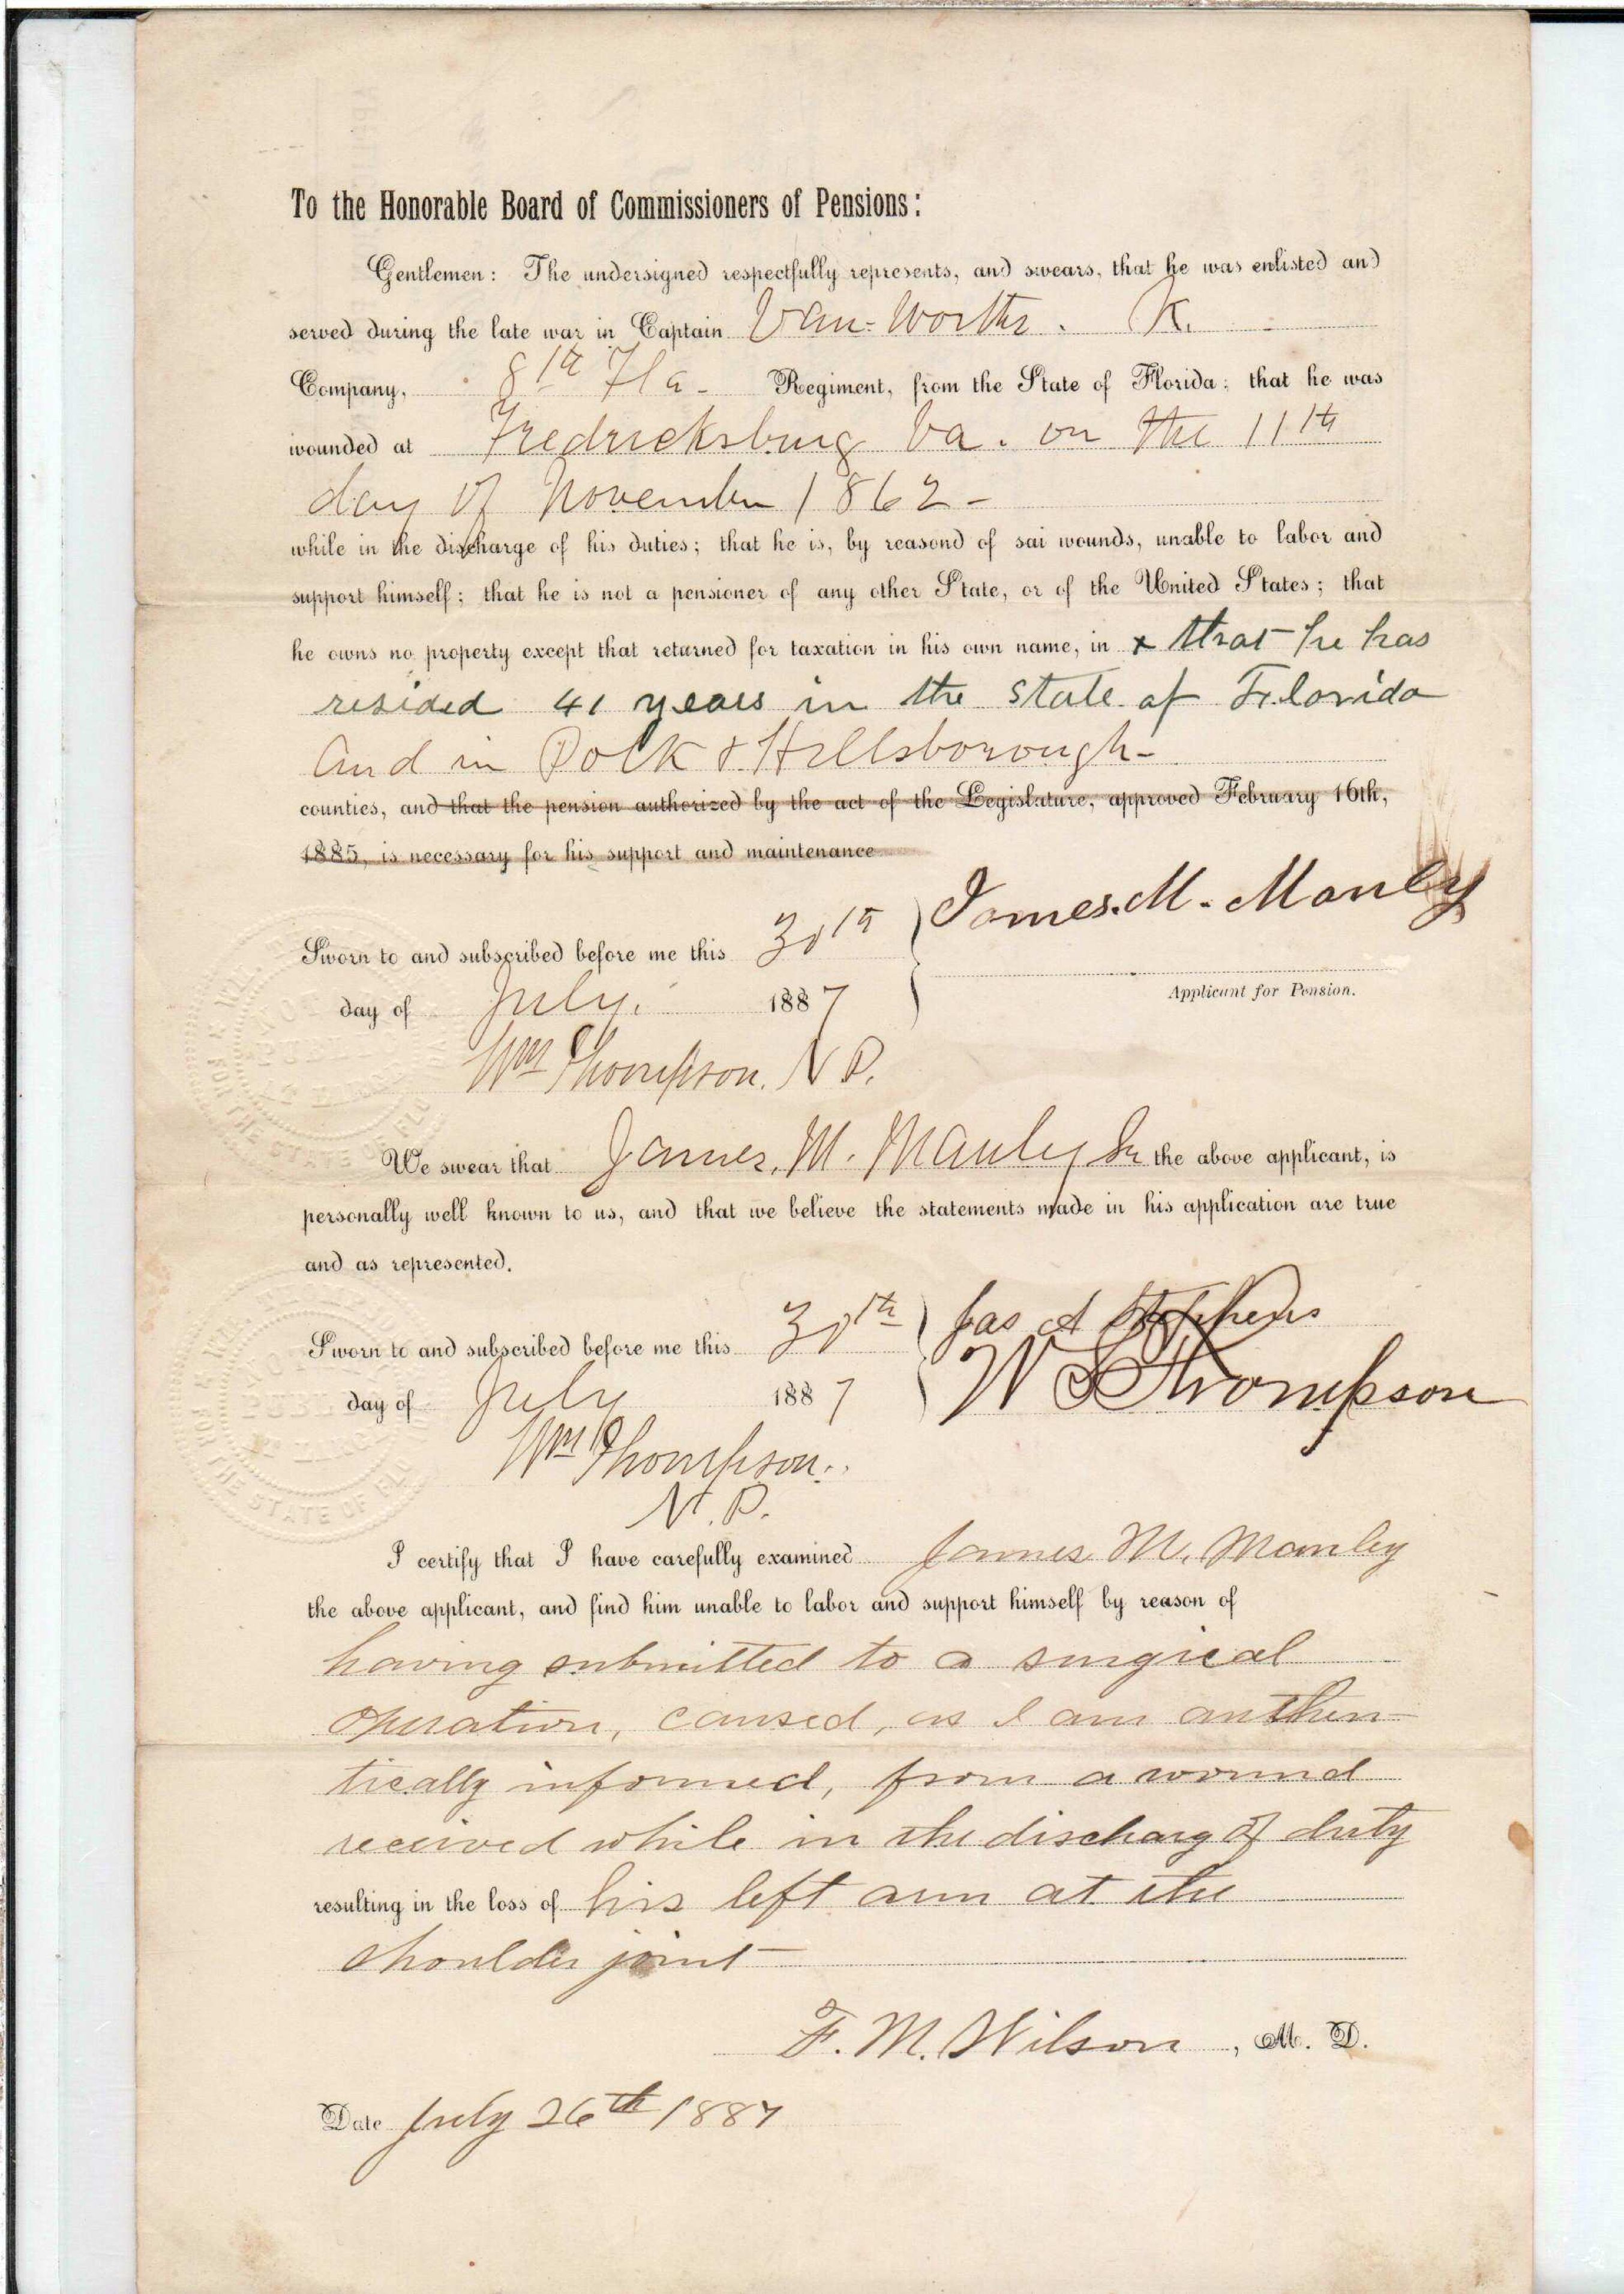 To the Honorable Board of Commissioners of Pensions:
Gentlemen: The undersigned respectfully represents, and swears, that he was enlisted and
served during the late war in Captain Van-Worths. K.
Company, 8th Fla- Regiment, from the State of Florida; that he was
wounded at Fredricksburg Va. on the 11th
day of November 1862-
while in the discharge of his duties; that he is, by reasond of sai wounds, unable to labor and
support himself; that he is not a pensioner of any other State, or of the United States; that
he owns no property except that returned for taxation in his own name, in x that he has
resided 41 years in the State of Florida
and in Polk & Hillsborough-
counties, and that the pension authorized by the act of the Legislature, approved February 16th,
1885, is necessary for his support and maintenance
James. M. Manley
Sworn to and subscribed before me this 30th
Applicant for Pension.
day of July. 1887
Wm Thompson. N P.
We swear that James. M. Manley Sr the above applicant, is
personally well known to us, and that we believe the statements made in his application are true
and as represented.
Sworn to and subscribed before me this 30th Jas A Stephens
day of July 1887 W S Thompson
Wm Thompson.
N. P.
I certify that I have carefully examined James M. Manley
the above applicant, and find him unable to labor and support himself by reason of
having submitted to a surgical
operation, caused, as I am authen-
tically informed, from a wound
received while in the discharg of duty
resulting in the loss of his left arm at the
shoulder joint
F. M. Wilson, M. D.
Date July 26th 1887
FOR THE STATE OF FLO
PUBLIC
FOR THE STATE OF FLO